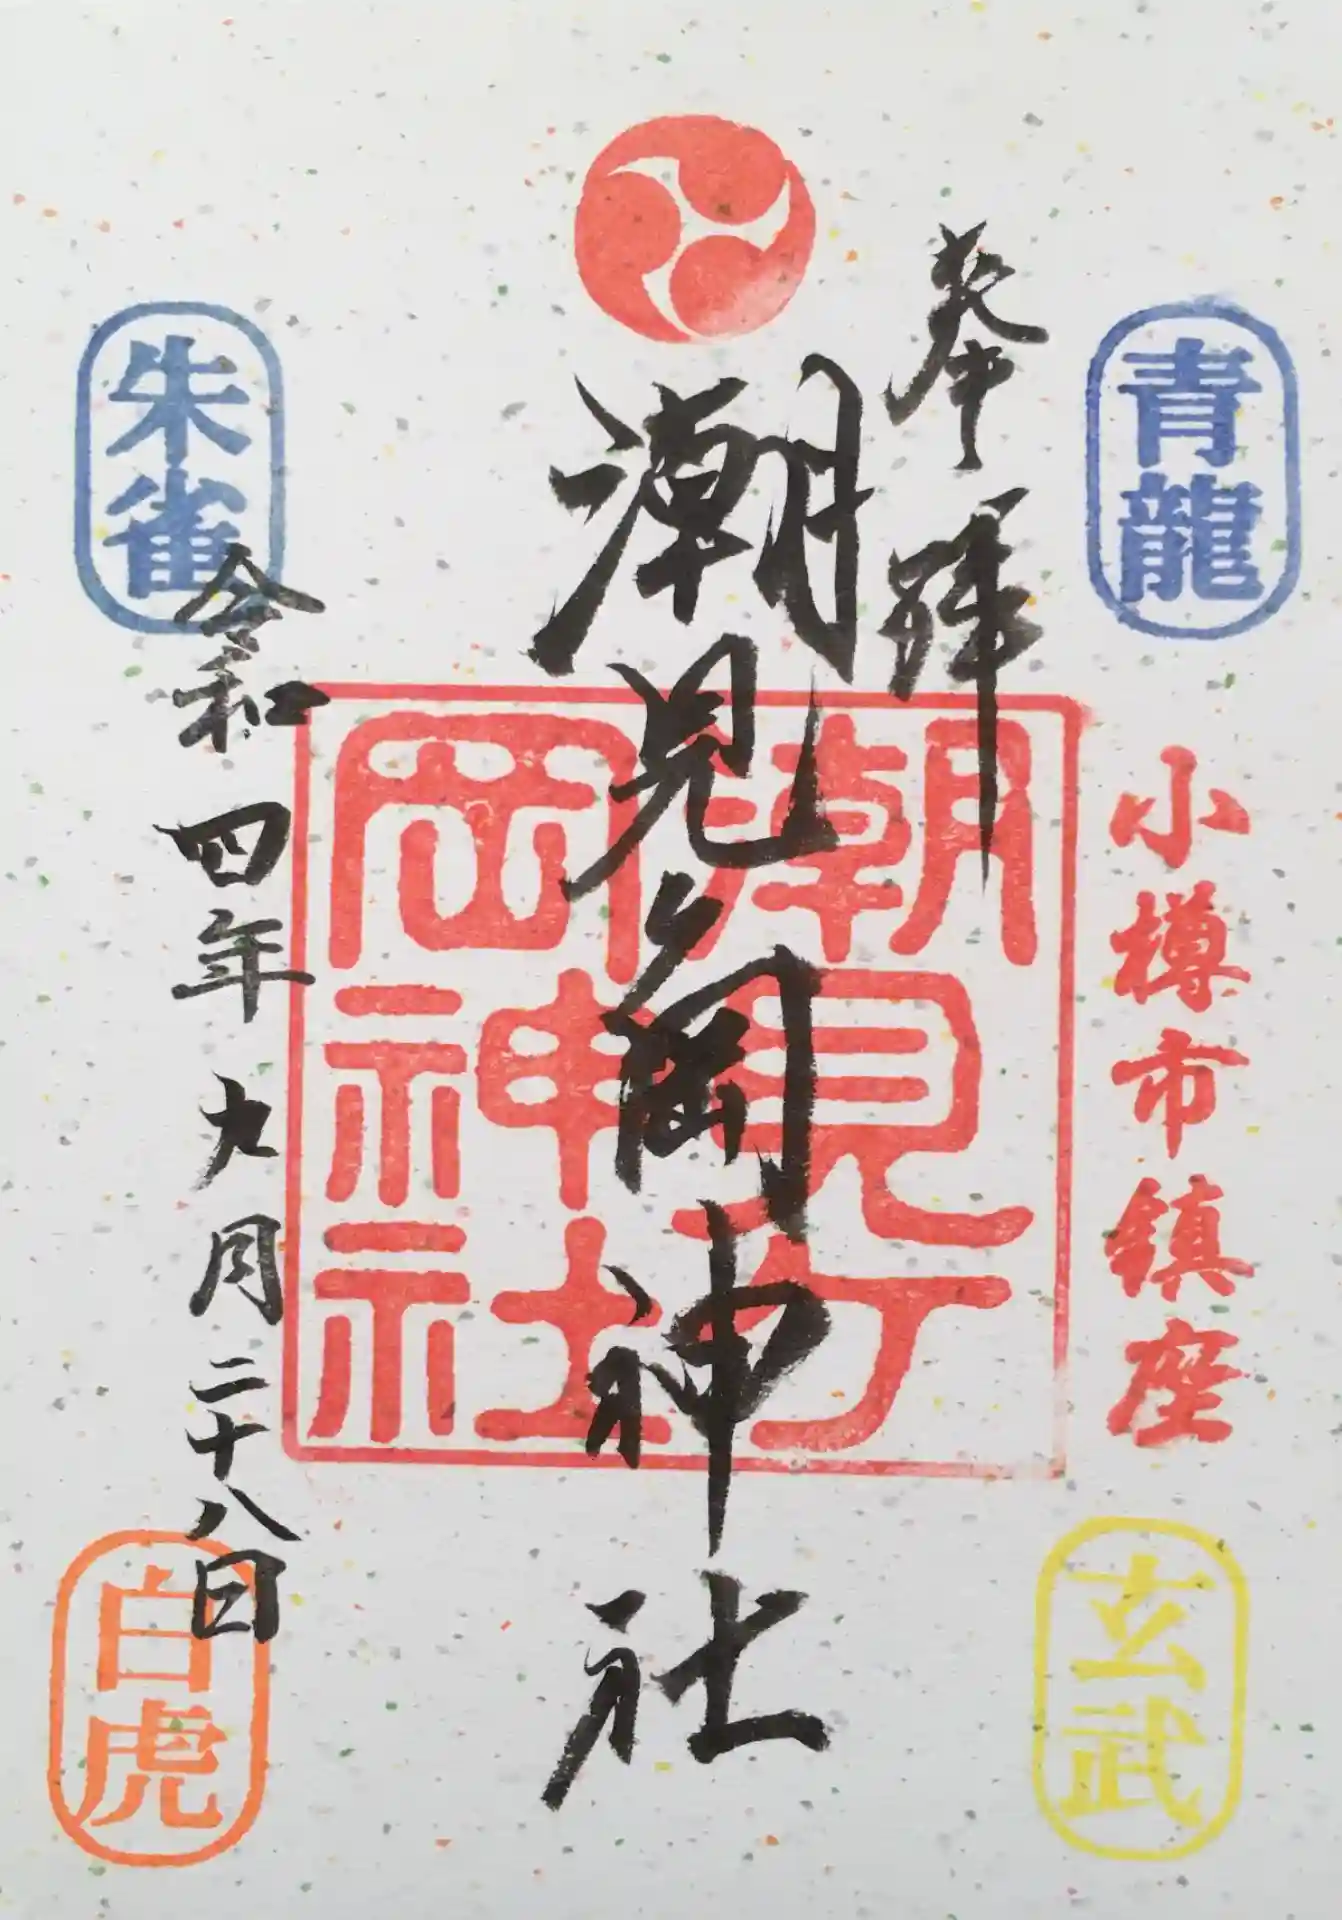 青龍
奉拝
小樽市鎮座
玄武
潮見ヶ岡神社
潮見ヶ
岡神社
朱雀
令和四年九月二十八日
白虎